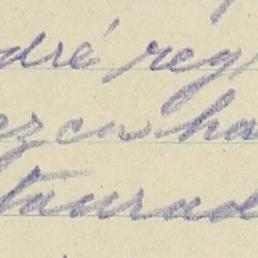 dré reg
ez en ha
Taurad